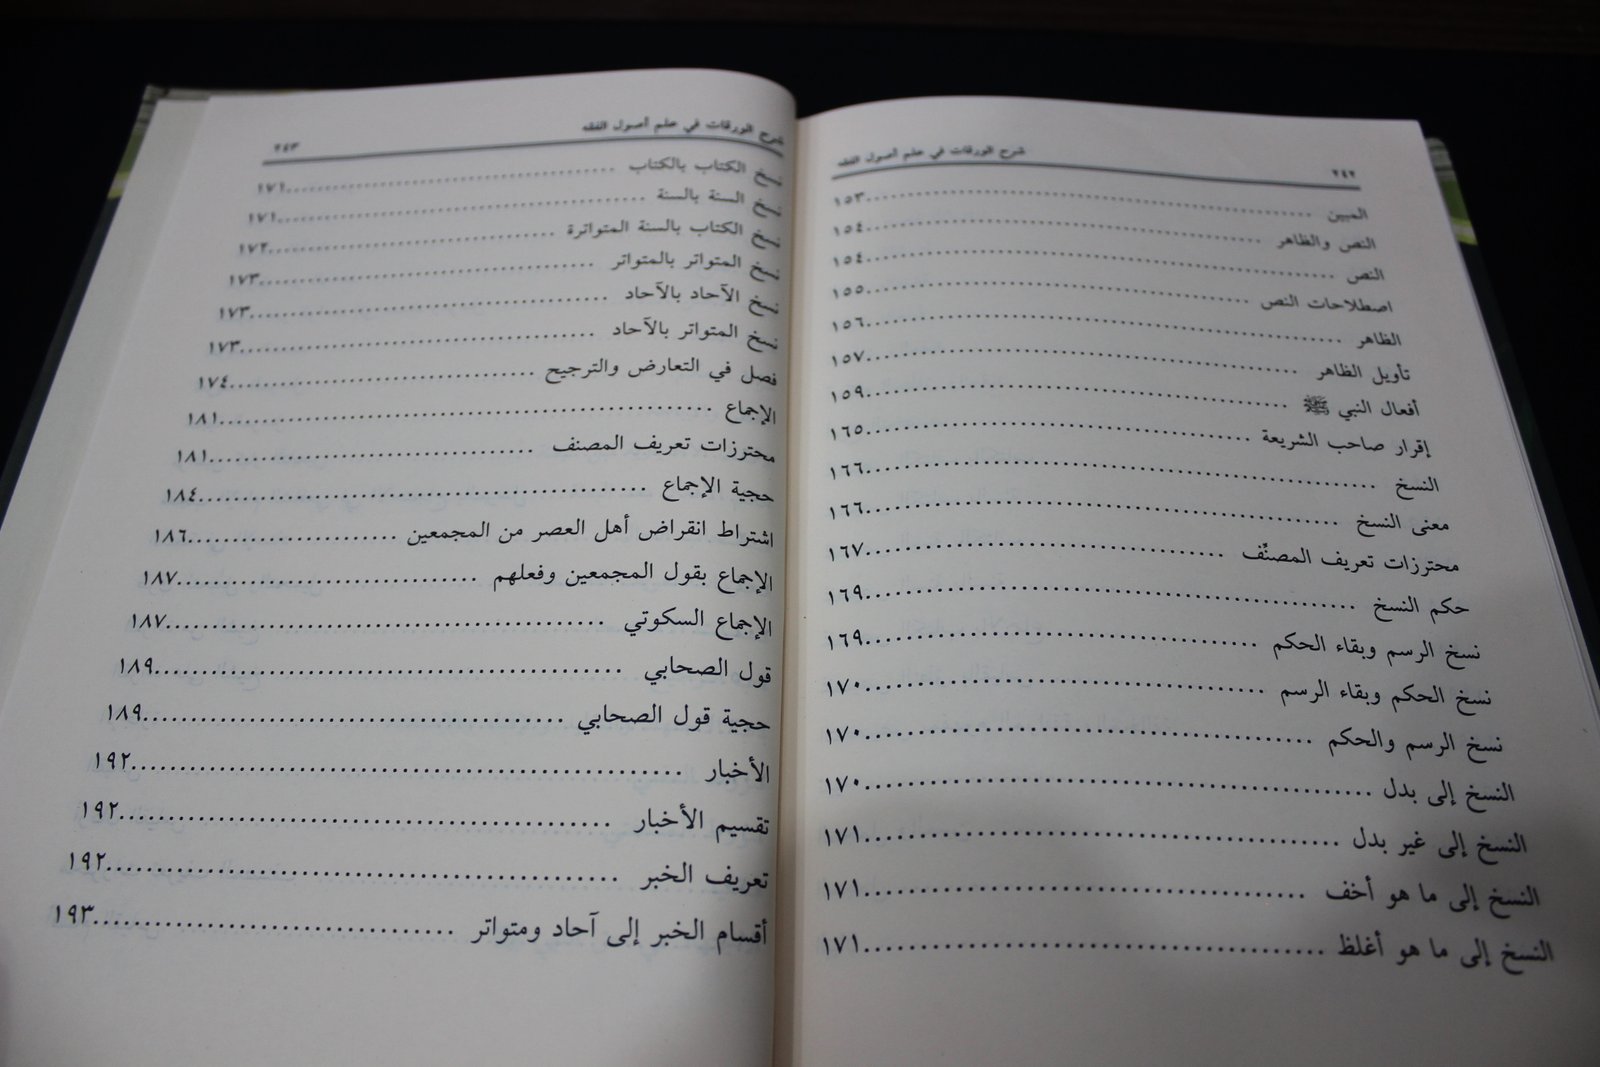 ٢٤٢ شرح الورقات في علم أصول الفقه
المبين ........ ١٥٣
النص والظاهر ........ ١٥٤
النص ........ ١٥٤
اصطلاحات النص ........ ١٥٥
الظاهر ........ ١٥٦
تأويل الظاهر ........ ١٥٧
أفعال النبي ﷺ ........ ١٥٩
إقرار صاحب الشريعة ........ ١٦٥
النسخ ........ ١٦٦
معنى النسخ ........ ١٦٦
محترزات تعريف المصنِّف ........ ١٦٧
حكم النسخ ........ ١٦٩
نسخ الرسم وبقاء الحكم ........ ١٦٩
نسخ الحكم وبقاء الرسم ........ ١٧٠
نسخ الرسم والحكم ........ ١٧٠
النسخ إلى بدل ........ ١٧٠
النسخ إلى غير بدل ........ ١٧١
النسخ إلى ما هو أخف ........ ١٧١
النسخ إلى ما هو أغلظ ........ ١٧١
شرح الورقات في علم أصول الفقه ٢٤٣
نسخ الكتاب بالكتاب ........ ١٧١
نسخ السنة بالسنة ........ ١٧١
نسخ الكتاب بالسنة المتواترة ........ ١٧٢
نسخ المتواتر بالمتواتر ........ ١٧٣
نسخ الآحاد بالآحاد ........ ١٧٣
نسخ المتواتر بالآحاد ........ ١٧٣
فصل في التعارض والترجيح ........ ١٧٤
الإجماع ........ ١٨١
محترزات تعريف المصنف ........ ١٨١
حجية الإجماع ........ ١٨٤
اشتراط انقراض أهل العصر من المجمعين ........ ١٨٦
الإجماع بقول المجمعين وفعلهم ........ ١٨٧
الإجماع السكوتي ........ ١٨٧
قول الصحابي ........ ١٨٩
حجية قول الصحابي ........ ١٨٩
الأخبار ........ ١٩٢
تقسيم الأخبار ........ ١٩٢
تعريف الخبر ........ ١٩٢
أقسام الخبر إلى آحاد ومتواتر ........ ١٩٣